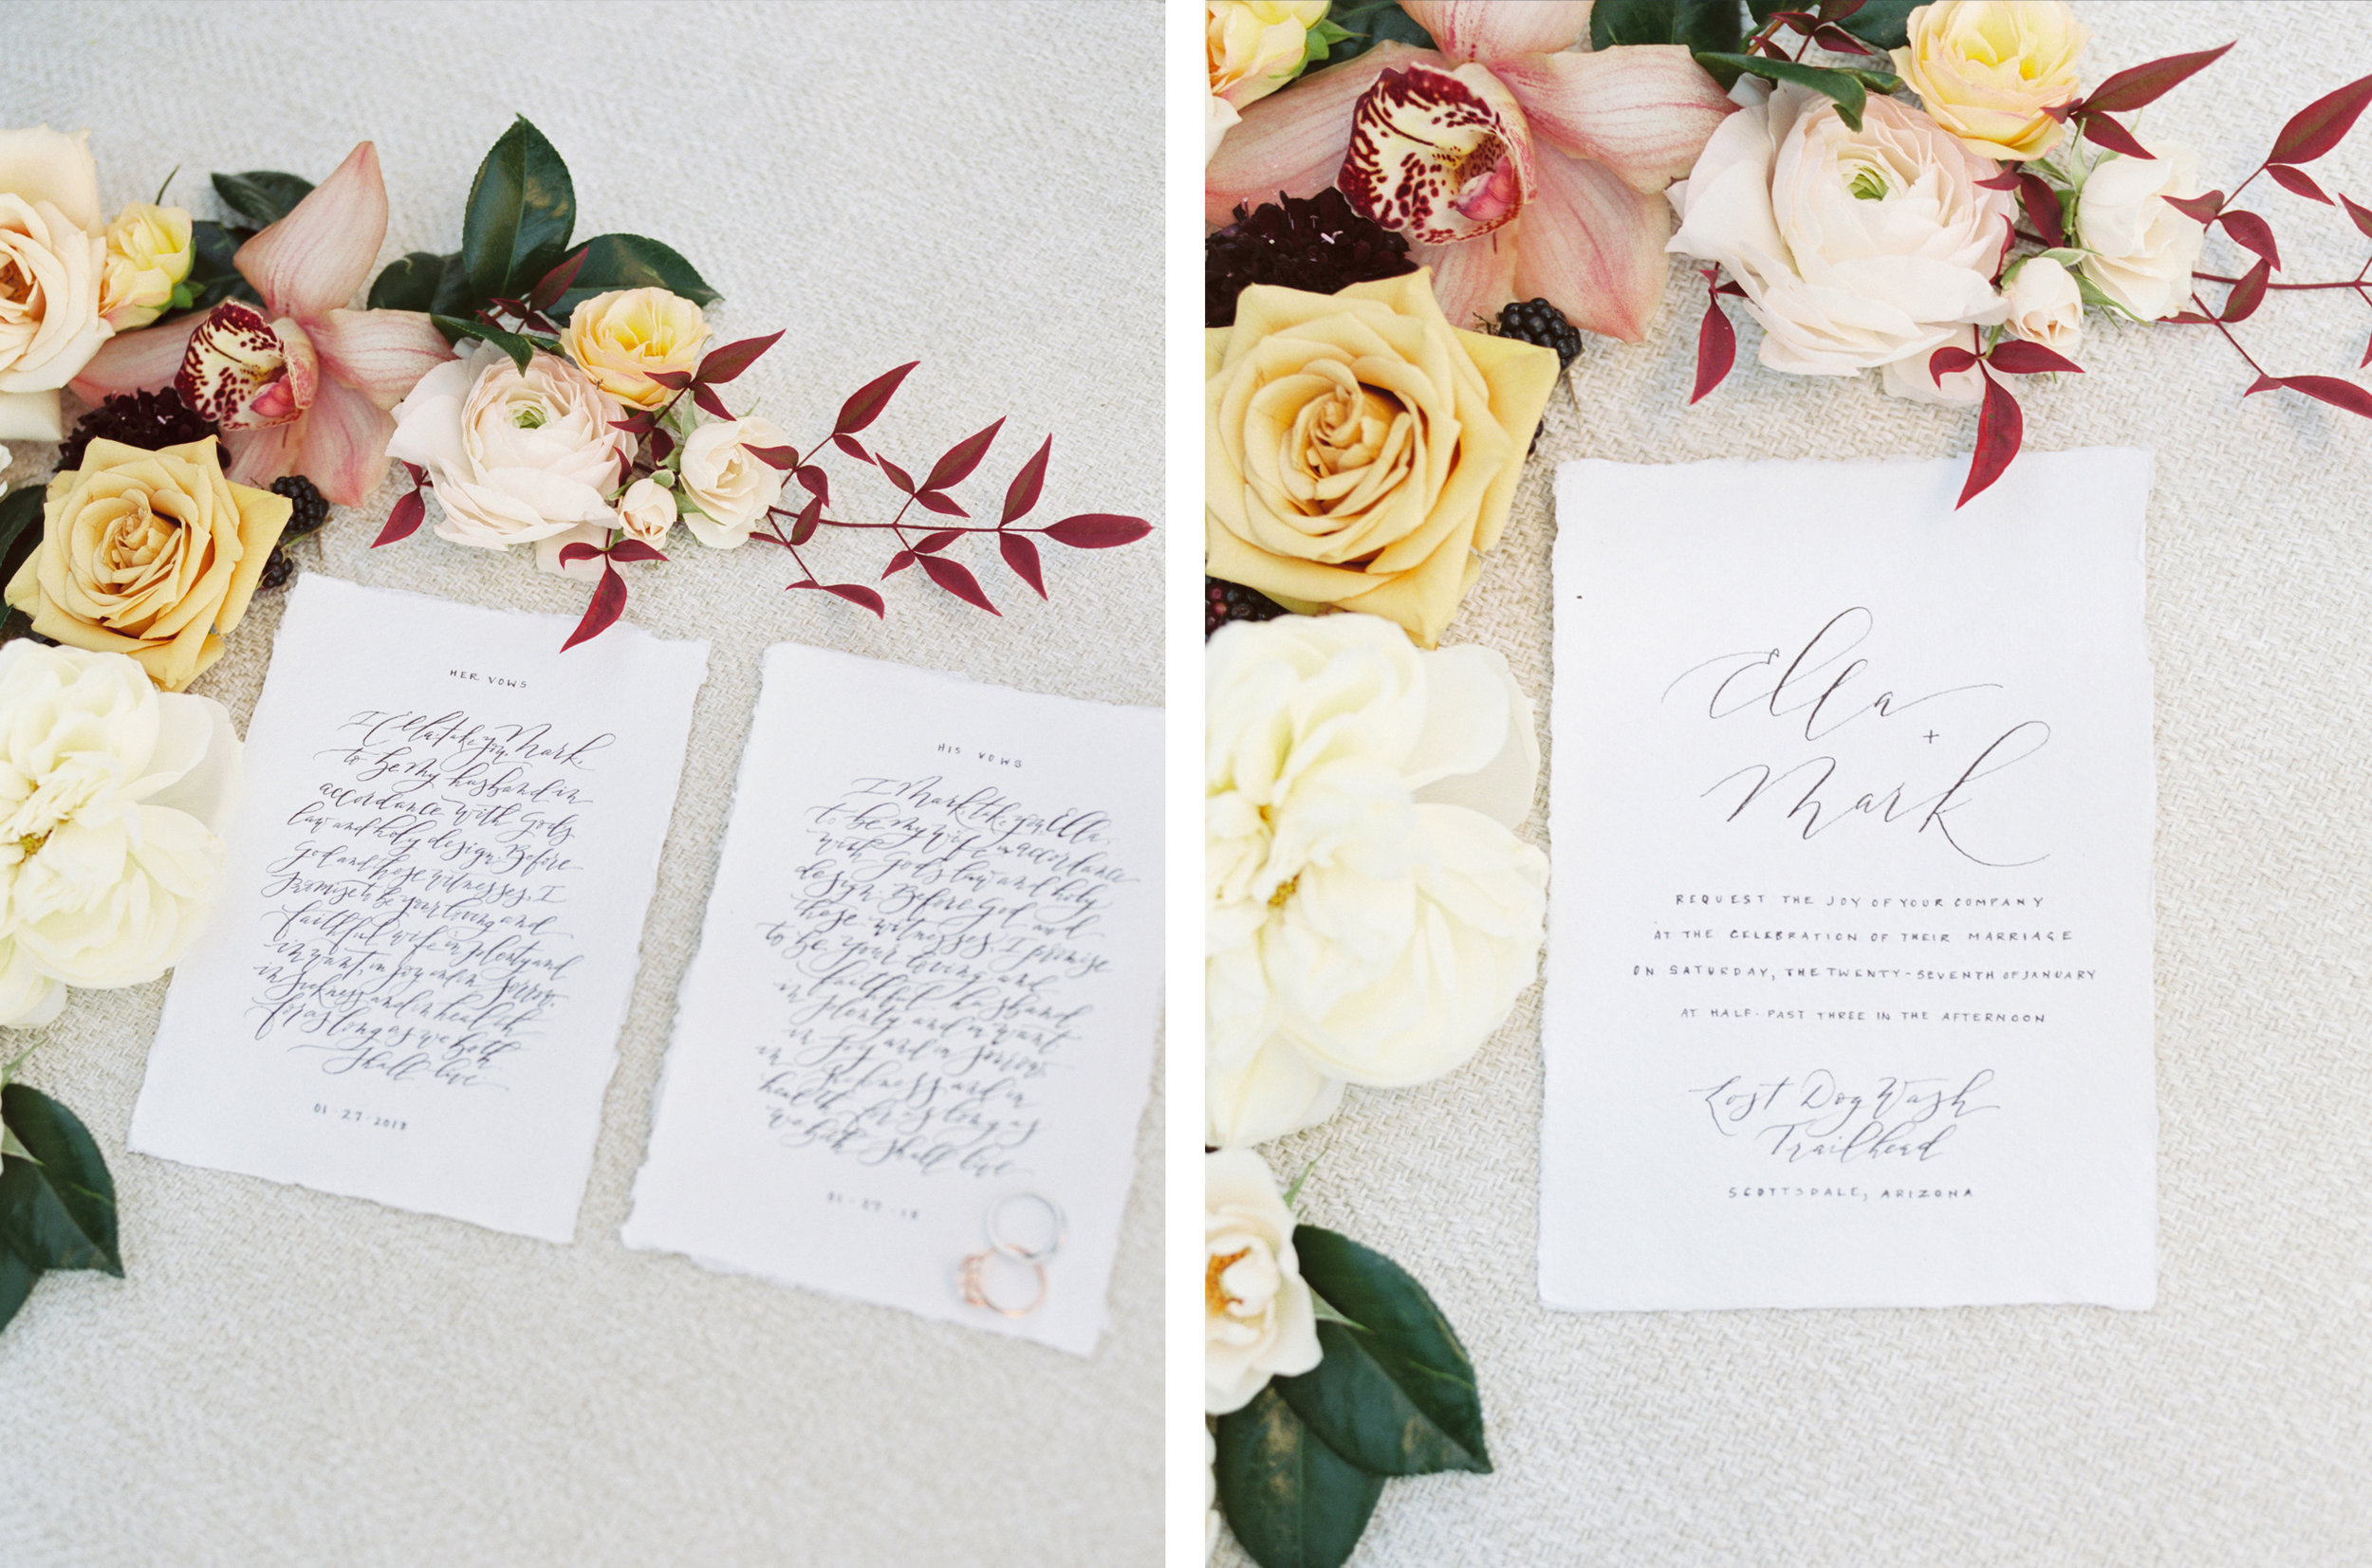 HER VOWS
I Ella take you, Mark,
to be my husband in
accordance with God's
law and holy design. Before
God and these witnesses, I
promise to be your loving and
faithful wife in plenty and
in want, in joy and in sorrow,
in sickness and in health
for as long as we both
shall live
01·27·2018
HIS VOWS
I Mark take you, Ella,
to be my wife in accordance
with God's law and holy
design. Before God and
these witnesses, I promise
to be your loving and
faithful husband
in plenty and in want
in joy and in sorrow
in sickness and in
health for as long as
we both shall live
01·27·18
Ella
+
Mark
REQUEST THE JOY OF YOUR COMPANY
AT THE CELEBRATION OF THEIR MARRIAGE
ON SATURDAY, THE TWENTY-SEVENTH OF JANUARY
AT HALF-PAST THREE IN THE AFTERNOON
Lost Dog Wash
Trailhead
SCOTTSDALE, ARIZONA